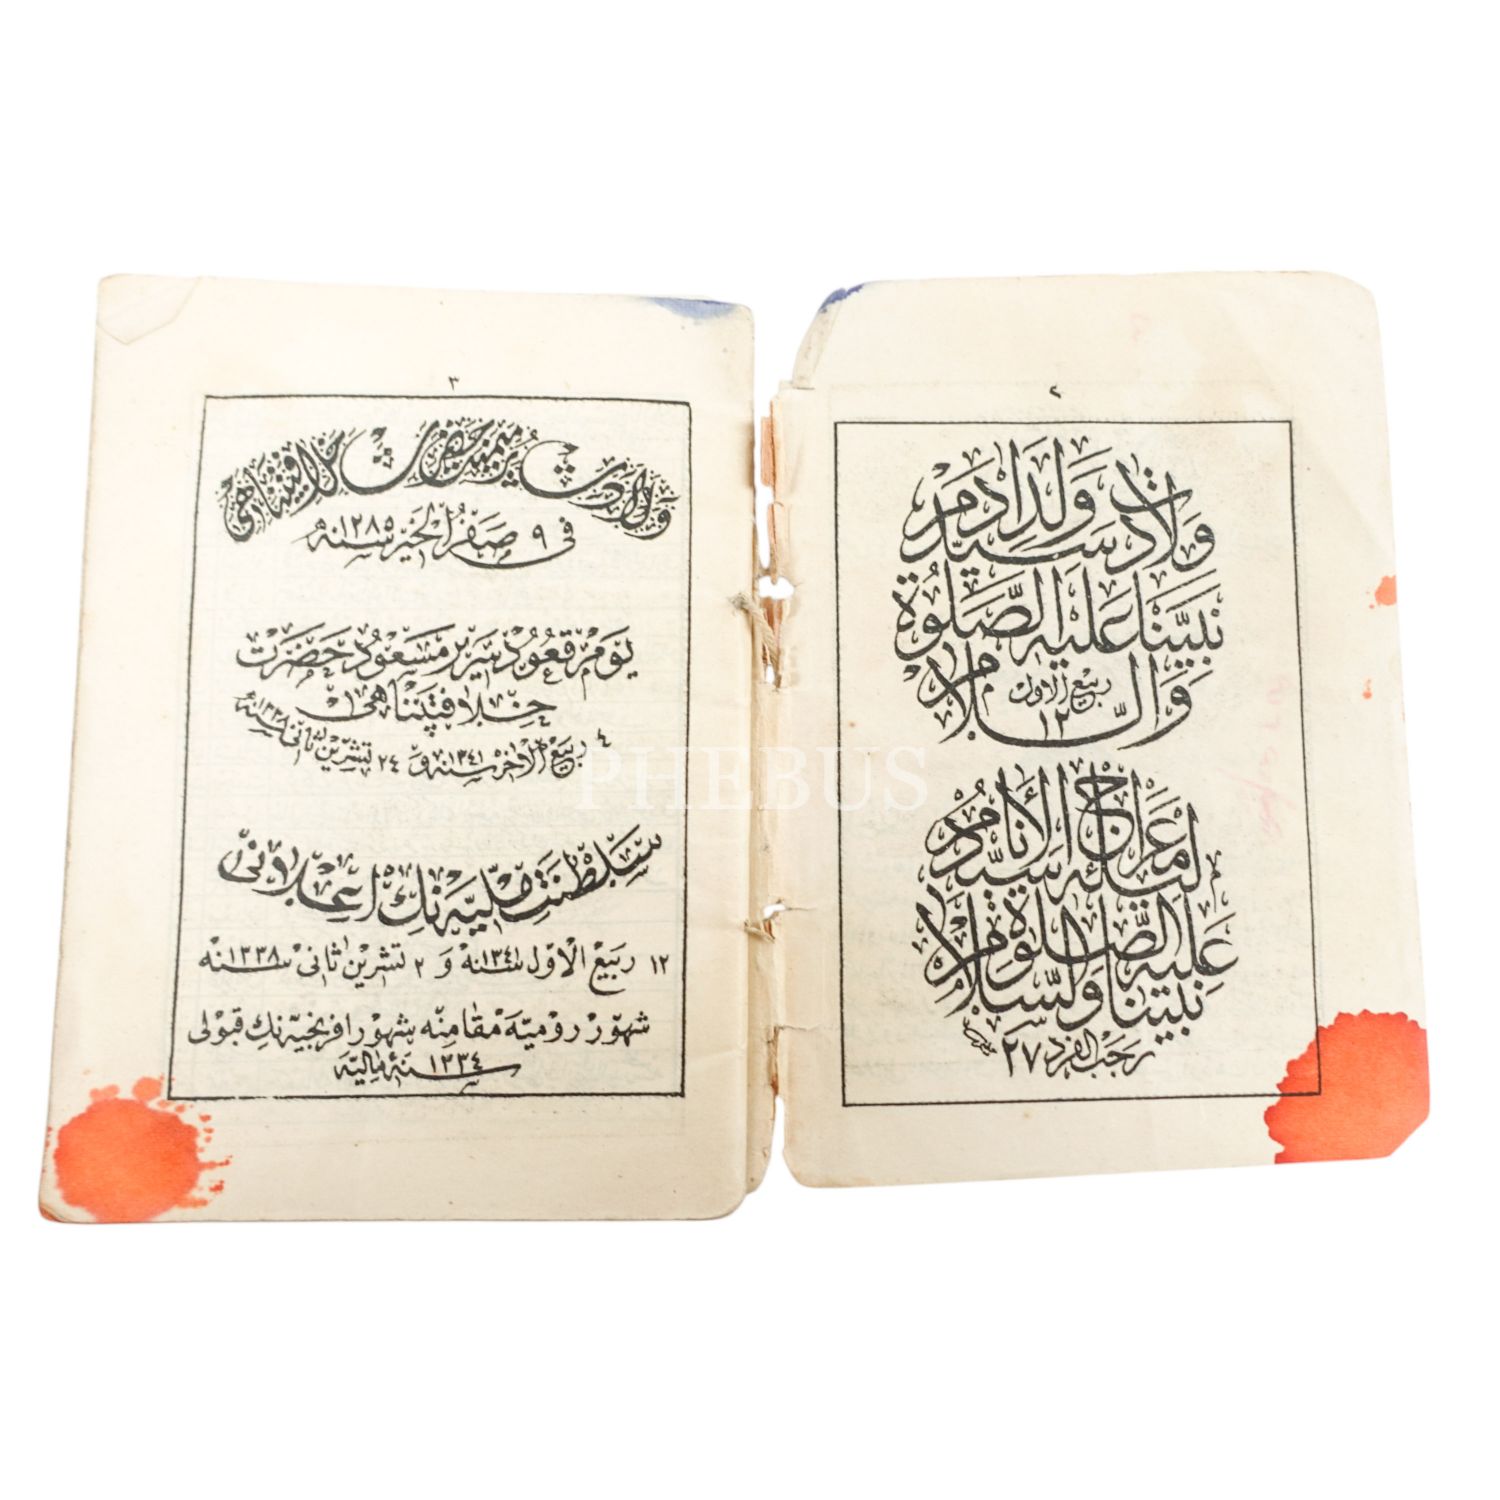 ٢
ولادت سيد ولد آدم
نبينا عليه الصلوة
والسلام
ربيع الاول
١٢
ليلة معراج سيد الأنام
نبينا عليه الصلوة والسلام
رجب الفرد ٢٧
٣
ولادت پرميمنت حضرت خلافتپناهى
فى ٩ صفر الخير سنه ١٢٨٥
يوم قعود سرير مسعود حضرت
خلافتپناهى
٤ ربيع الاخر سنه ١٣٤١ و ٢٤ تشرين ثانى سنه ١٣٣٨
سلطنت مليه نك اعلانى
١٢ ربيع الاول سنه ١٣٤١ و ٢ تشرين ثانى سنه ١٣٣٨
شهور روميه مقامنه شهور افرنجيه نك قبولى
سنۀ ماليه ١٣٣٤
PHEBUS